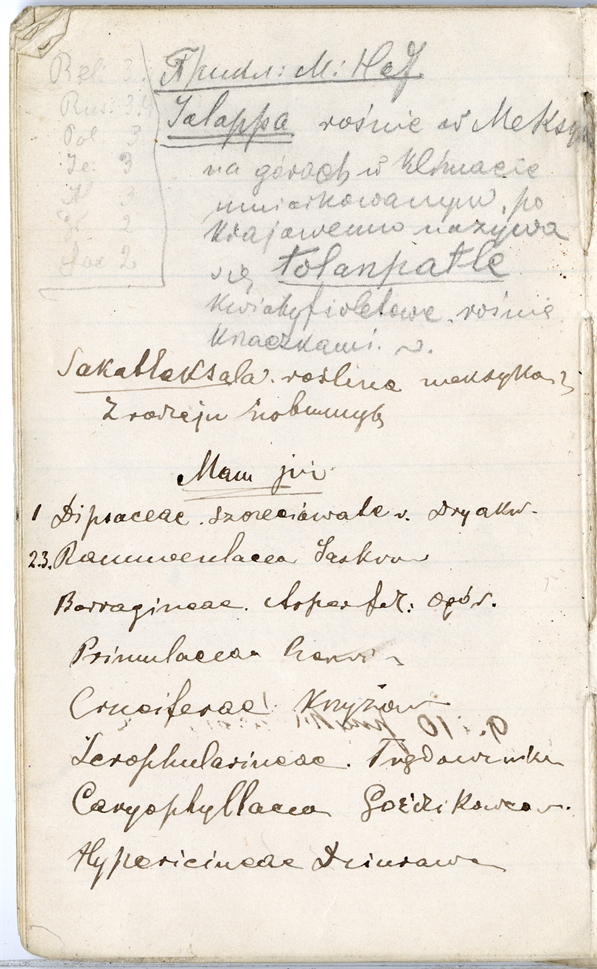 Rel: 3.
Rus: 3.
Pol 3
Je: 3
3
2
2
М: Неу
Jalappa rośnie w Meksy
na górach w klimacie
umiarkowanym, po
krajowemu nazywa
się tolanpatle
kwiaty fioletowe. rośnie
knaczkami.
Sakatlaksala. roślina meksyka
Z rodzju
Mam już
1 Dipsaceae. szczeciowate v. Dryakw.
2.3. Rannunculacea Jaskrow
Borragineae. Asperf. Ogór.
Primulaceae
Cruciferae Krzyżow
9. i 10
Scrophularineae. Trędownik
Caryophyllacea Goździkowa
Hypericineae Dziuraw